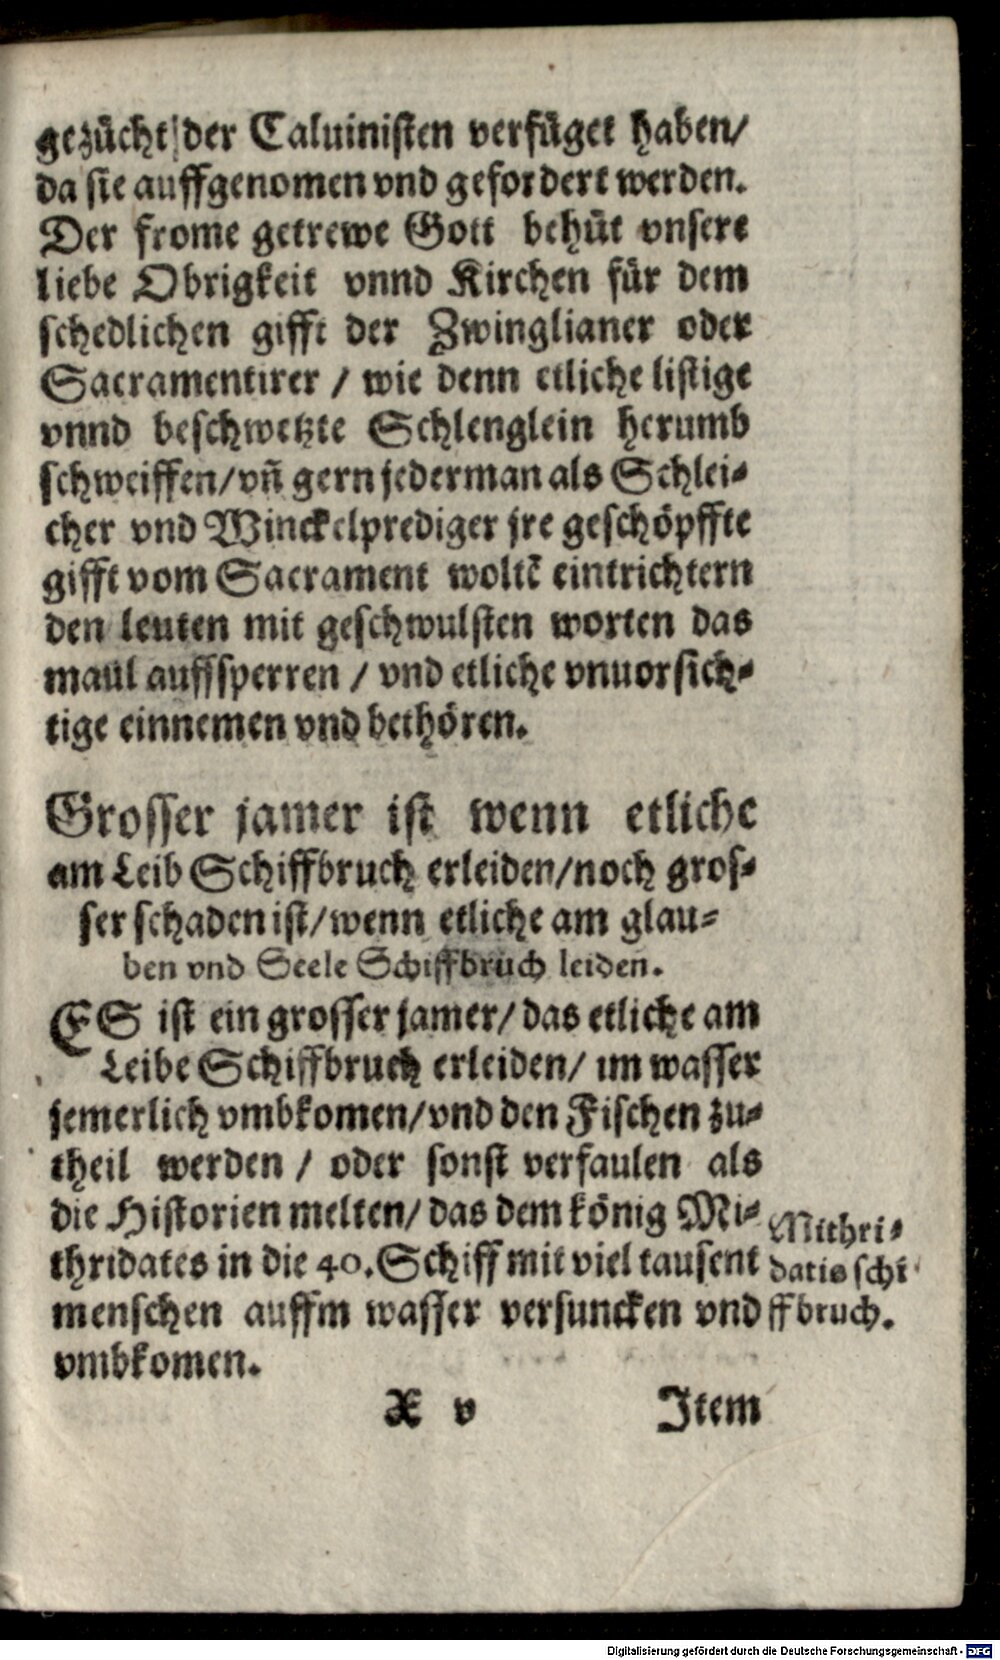 gezücht der Caluinisten verfüget haben/
da sie auffgenomen vnd gefordert werden.
Der frome getrewe Gott behüt vnsere
liebe Obrigkeit vnnd Kirchen für dem
schedlichen gifft der Zwinglianer oder
Sacramentirer / wie denn etliche listige
vnnd beschwetzte Schlenglein herumb
schweiffen/vñ gern jederman als Schlei-
cher vnd Winckelprediger jre geschöpffte
gifft vom Sacrament woltẽ eintrichtern
den leuten mit geschwulsten worten das
maul auffsperren / vnd etliche vnuorsich-
tige einnemen vnd bethören.
Grosser jamer ist wenn etliche
am Leib Schiffbruch erleiden/noch gros-
ser schaden ist/wenn etliche am glau-
ben vnd Seele Schiffbruch leiden.
ES ist ein grosser jamer/das etliche am
Leibe Schiffbruch erleiden/ im wasser
jemerlich vmbkomen/vnd den Fischen zu-
theil werden / oder sonst verfaulen als
die Historien melten/das dem könig Mi-
thridates in die 40.Schiff mit viel tausent
menschen auffm wasser versuncken vnd
vmbkomen.
Mithri-
datis schi
ffbruch.
X v Item
Digitalisierung gefördert durch die Deutsche Forschungsgemeinschaft - DFG